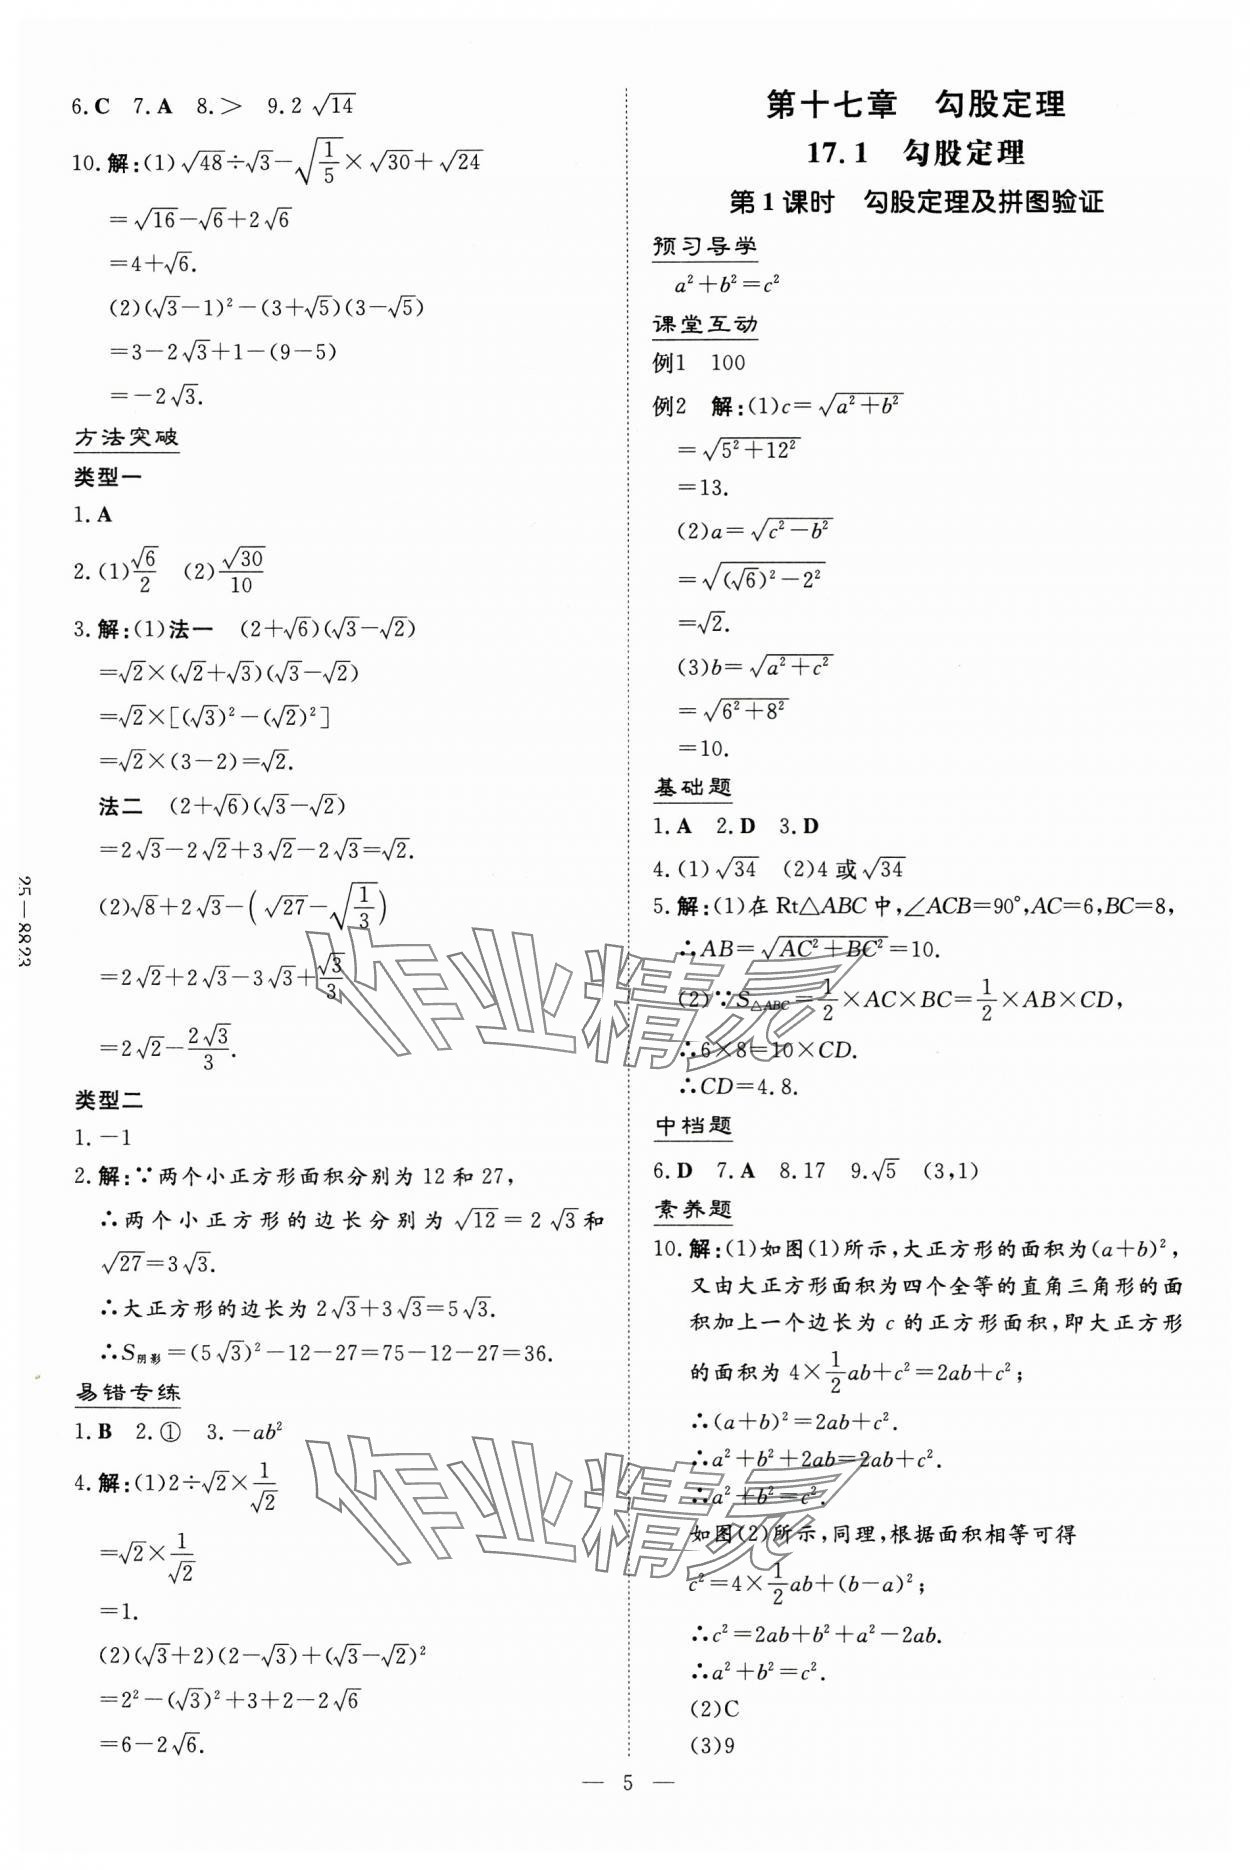 6.C 7.A 8.> 9.2√14
10.解:(1)√48÷√3-√(1/5)×√30+√24
=√16-√6+2√6
=4+√6.
(2)(√3-1)²-(3+√5)(3-√5)
=3-2√3+1-(9-5)
=-2√3.
方法突破
类型一
1.A
2.(1)√6/2 (2)√30/10
3.解:(1)法一 (2+√6)(√3-√2)
=√2×(√2+√3)(√3-√2)
=√2×[(√3)²-(√2)²]
=√2×(3-2)=√2.
法二 (2+√6)(√3-√2)
=2√3-2√2+3√2-2√3=√2.
(2)√8+2√3-(√27-√(1/3))
=2√2+2√3-3√3+√3/3
=2√2-2√3/3.
类型二
1.-1
2.解:∵两个小正方形面积分别为12和27,
∴两个小正方形的边长分别为√12=2√3和
√27=3√3.
∴大正方形的边长为2√3+3√3=5√3.
∴S阴影=(5√3)²-12-27=75-12-27=36.
易错专练
1.B 2.① 3.-ab²
4.解:(1)2÷√2×1/√2
=√2×1/√2
=1.
(2)(√3+2)(2-√3)+(√3-√2)²
=2²-(√3)²+3+2-2√6
=6-2√6.
第十七章 勾股定理
17.1 勾股定理
第1课时 勾股定理及拼图验证
预习导学
a²+b²=c²
课堂互动
例1 100
例2 解:(1)c=√(a²+b²)
=√(5²+12²)
=13.
(2)a=√(c²-b²)
=√((√6)²-2²)
=√2.
(3)b=√(a²+c²)
=√(6²+8²)
=10.
基础题
1.A 2.D 3.D
4.(1)√34 (2)4或√34
5.解:(1)在Rt△ABC中,∠ACB=90°,AC=6,BC=8,
∴AB=√(AC²+BC²)=10.
(2)∵S△ABC=1/2×AC×BC=1/2×AB×CD,
∴6×8=10×CD.
∴CD=4.8.
中档题
6.D 7.A 8.17 9.√5 (3,1)
素养题
10.解:(1)如图(1)所示,大正方形的面积为(a+b)²,
又由大正方形面积为四个全等的直角三角形的面
积加上一个边长为c的正方形面积,即大正方形
的面积为4×1/2ab+c²=2ab+c²;
∴(a+b)²=2ab+c².
∴a²+b²+2ab=2ab+c².
∴a²+b²=c².
如图(2)所示,同理,根据面积相等可得
c²=4×1/2ab+(b-a)²;
∴c²=2ab+b²+a²-2ab.
∴a²+b²=c².
(2)C
(3)9
25—8823
— 5 —
作业精灵
作业精灵